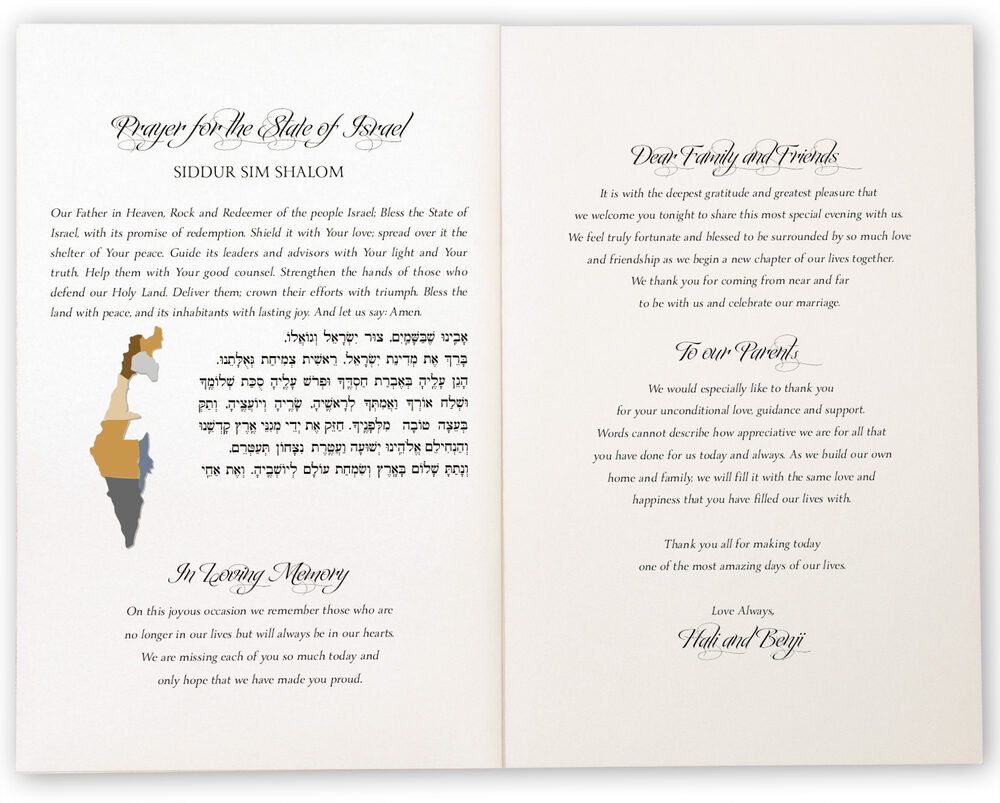 Prayer for the State of Israel
SIDDUR SIM SHALOM
Our Father in Heaven, Rock and Redeemer of the people Israel; Bless the State of
Israel, with its promise of redemption. Shield it with Your love; spread over it the
shelter of Your peace. Guide its leaders and advisors with Your light and Your
truth. Help them with Your good counsel. Strengthen the hands of those who
defend our Holy Land. Deliver them; crown their efforts with triumph. Bless the
land with peace, and its inhabitants with lasting joy. And let us say: Amen.
אָבִינוּ שֶׁבַּשָּׁמַיִם, צוּר יִשְׂרָאֵל וְגוֹאֲלוֹ,
בָּרֵךְ אֶת מְדִינַת יִשְׂרָאֵל, רֵאשִׁית צְמִיחַת גְּאֻלָּתֵנוּ.
הָגֵן עָלֶיהָ בְּאֶבְרַת חַסְדֶּךָ וּפְרֹשׁ עָלֶיהָ סֻכַּת שְׁלוֹמֶךָ
וּשְׁלַח אוֹרְךָ וַאֲמִתְּךָ לְרָאשֶׁיהָ, שָׂרֶיהָ וְיוֹעֲצֶיהָ, וְתַקְּ
בְּעֵצָה טוֹבָה מִלְּפָנֶיךָ. חַזֵּק אֶת יְדֵי מְגִנֵּי אֶרֶץ קָדְשֵׁנוּ
וְהַנְחִילֵם אֱלֹהֵינוּ יְשׁוּעָה וַעֲטֶרֶת נִצָּחוֹן תְּעַטְּרֵם.
וְנָתַתָּ שָׁלוֹם בָּאָרֶץ וְשִׂמְחַת עוֹלָם לְיוֹשְׁבֶיהָ. וְאֶת אַחֵי
In Loving Memory
On this joyous occasion we remember those who are
no longer in our lives but will always be in our hearts.
We are missing each of you so much today and
only hope that we have made you proud.
Dear Family and Friends
It is with the deepest gratitude and greatest pleasure that
we welcome you tonight to share this most special evening with us.
We feel truly fortunate and blessed to be surrounded by so much love
and friendship as we begin a new chapter of our lives together.
We thank you for coming from near and far
to be with us and celebrate our marriage.
To our Parents
We would especially like to thank you
for your unconditional love, guidance and support.
Words cannot describe how appreciative we are for all that
you have done for us today and always. As we build our own
home and family, we will fill it with the same love and
happiness that you have filled our lives with.
Thank you all for making today
one of the most amazing days of our lives.
Love Always,
Hali and Benji